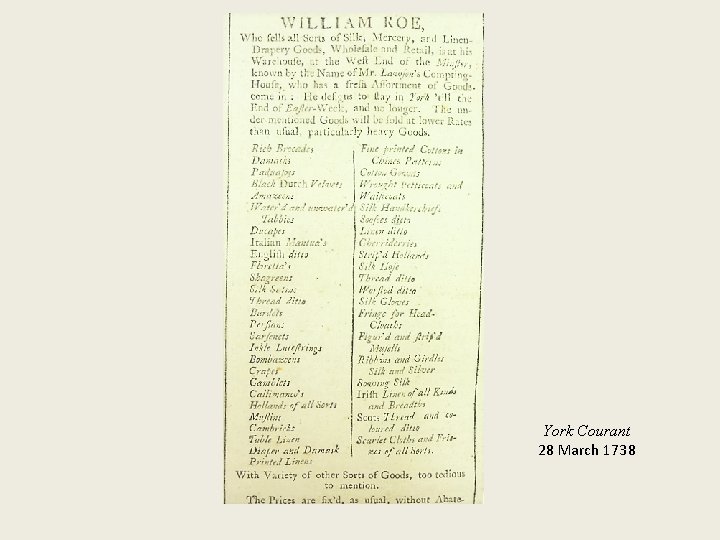 WILLIAM ROE,
Who ſells all Sorts of Silk, Mercery, and Linen-
Drapery Goods, Wholeſale and Retail, is at his
Warehouſe, at the Weſt End of the Minſter,
known by the Name of Mr. Compting-
Houſe, who has a freſh Aſſortment of Goods
come in: He deſigns to ſtay in York 'till the
End of Eaſter-Week, and no longer. The un-
der-mentioned Goods will be ſold at lower Rates
than uſual, particularly heavy Goods.
Rich Brocades
Damasks
Paduaſoys
Black Dutch Velvets
Amazeens
Water'd and unwater'd
Tabbies
Ducapes
Italian Mantua's
Engliſh ditto
Floretta's
Shagreens
Silk Satins
Thread ditto
Burdets
Perſians
Sarſenets
Inkle Luteſtrings
Bombazeens
Crapes
Camblets
Callimanco's
Hollands of all Sorts
Muſlins
Cambricks
Table Linen
Diaper and Damask
Printed Linens
Fine printed Cottons in
Chinea Patterns
Cotton Gowns
Wrought Petticoats and
Waiſtcoats
Silk Handkerchiefs
Sooſees ditto
Linen ditto
Cherriderries
Strip'd Hollands
Silk Hoſe
Thread ditto
Worſted ditto
Silk Gloves
Fringe for Head-
Cloaths
Figur'd and ſtrip'd
Muſells
Ribbins and Girdles
Silk and Silver
Sowing Silk
Iriſh Linen of all Kinds
and Breadths
Scots Thread and co-
loured ditto
Scarlet Cloths and Fri-
zes of all Sorts.
With Variety of other Sorts of Goods, too tedious
to mention.
The Prices are fix'd, as uſual, without Abate-
York Courant
28 March 1738